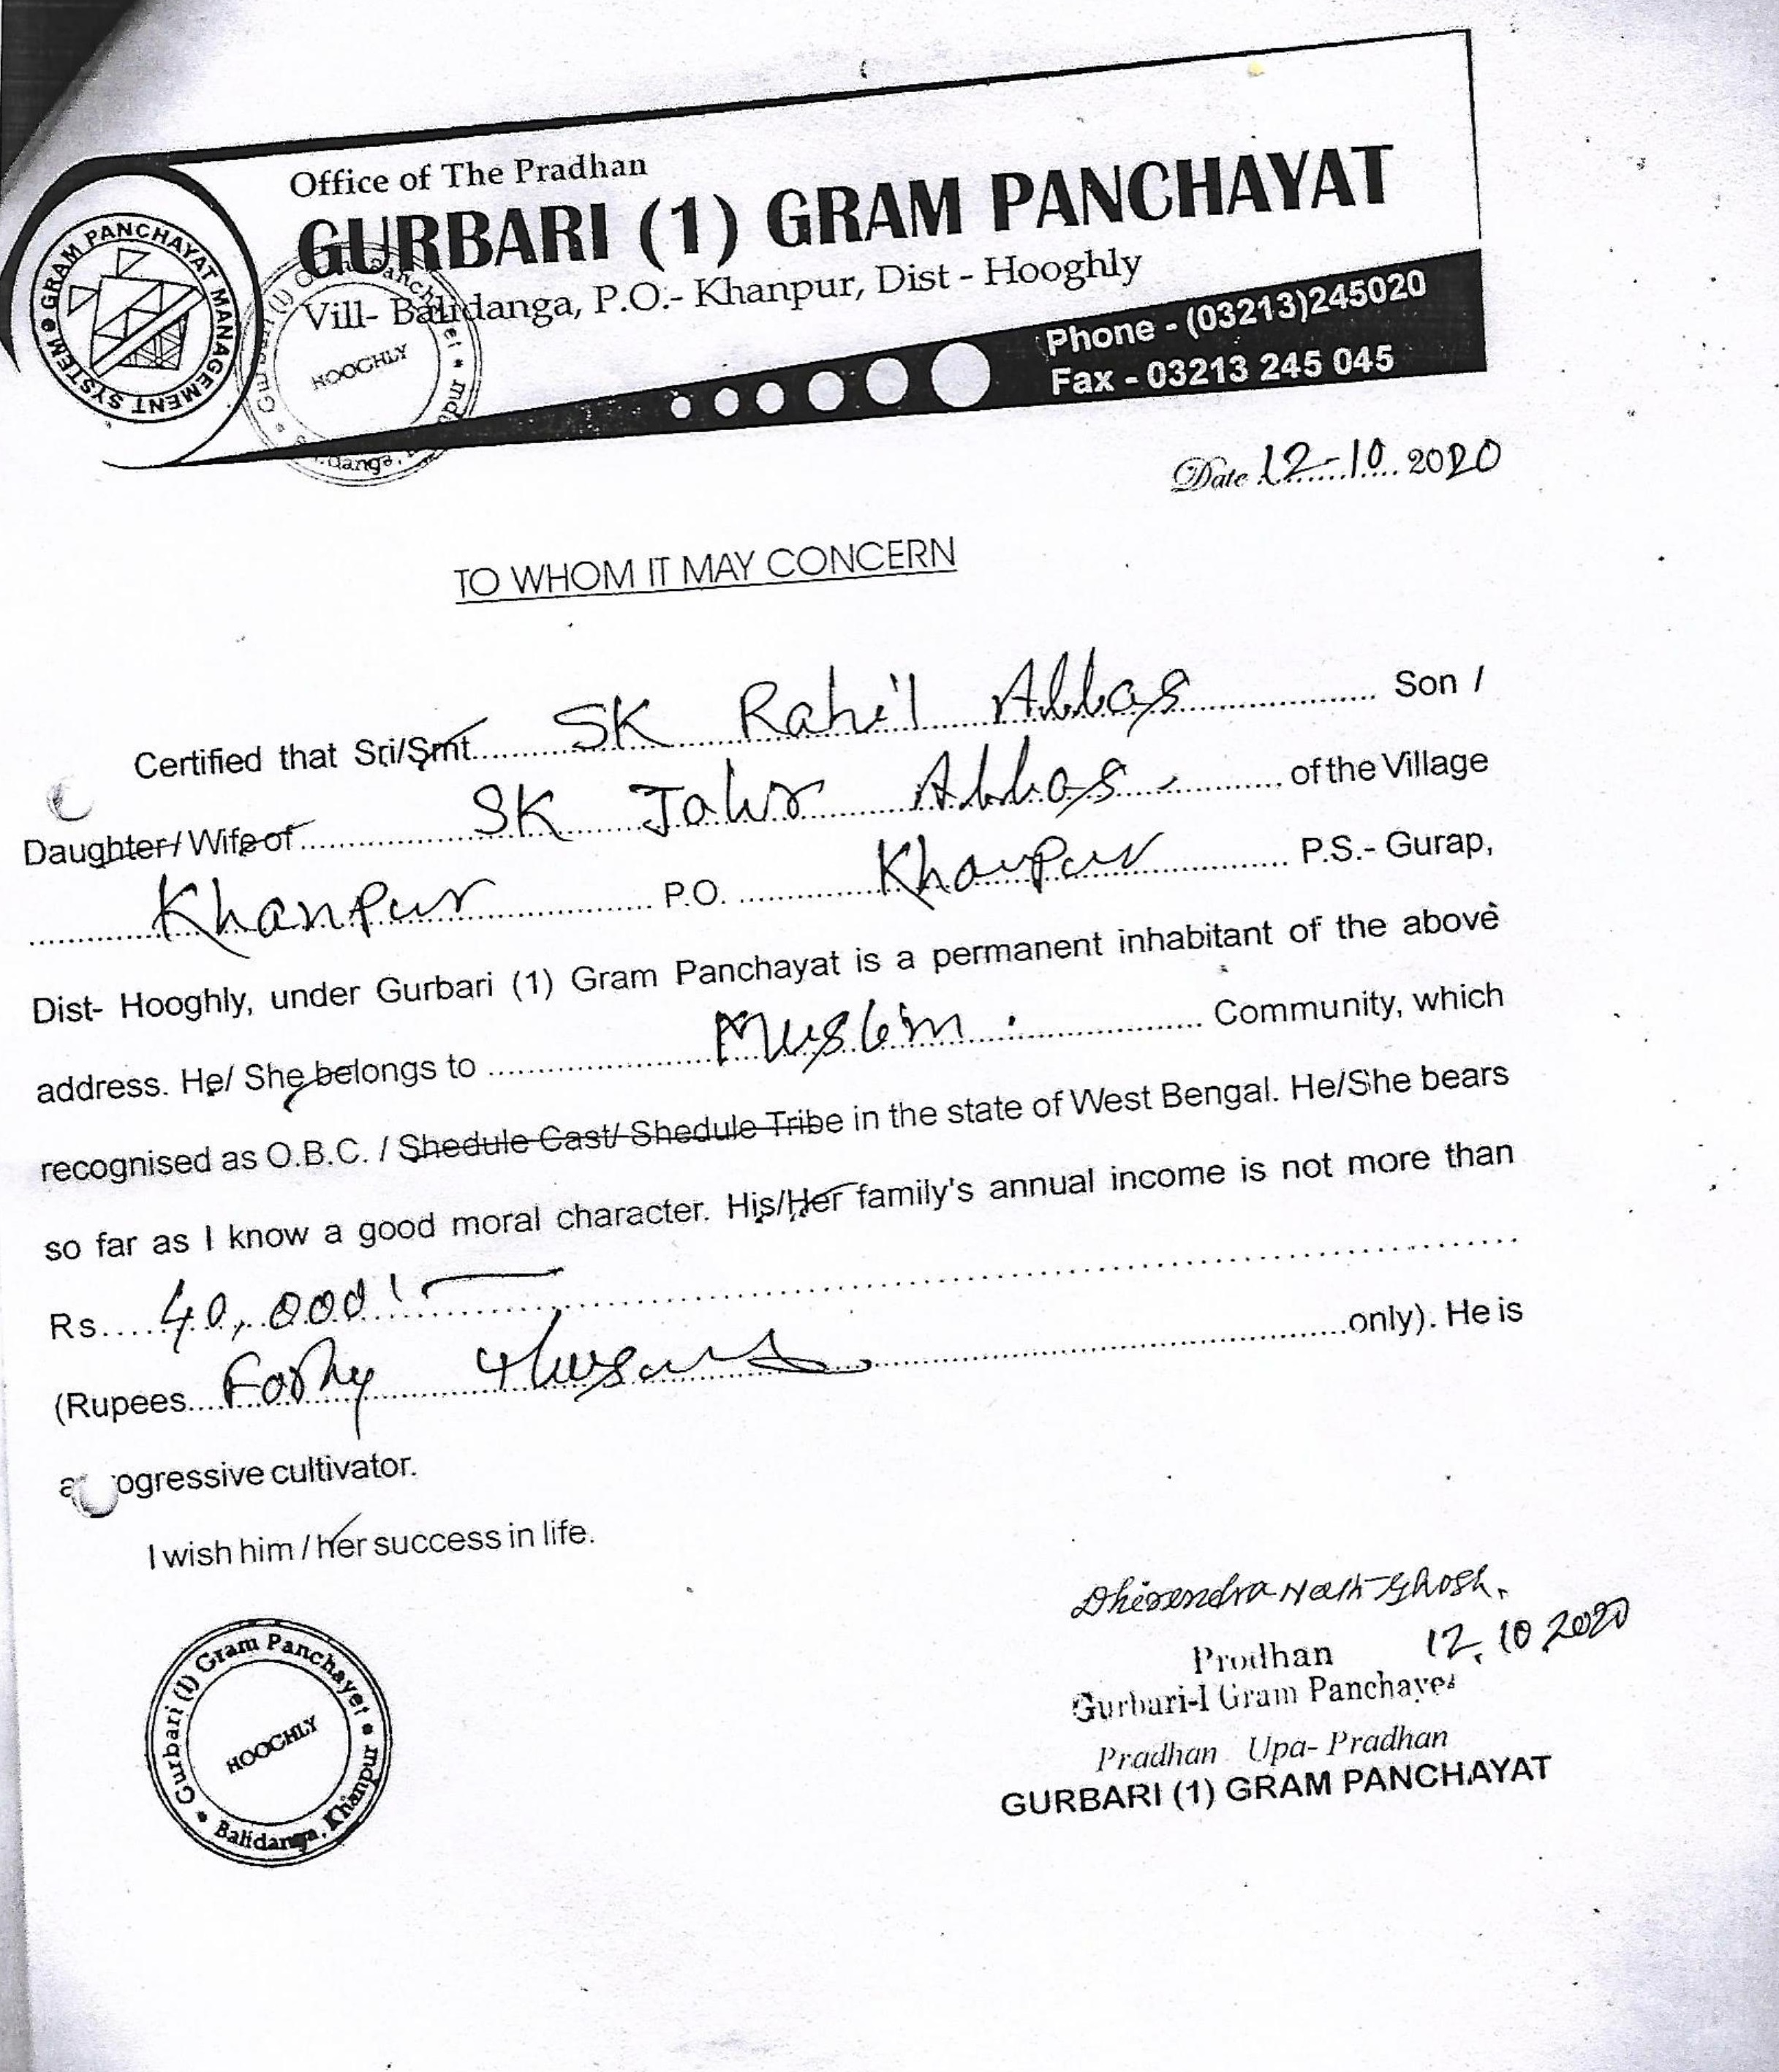 Office of The Pradhan
GURBARI (1) GRAM PANCHAYAT
Vill- Balidanga, P.O.- Khanpur, Dist - Hooghly
Phone - (03213)245020
Fax - 03213 245 045
GRAM PANCHAYAT MANAGEMENT SYSTEM
HOOGHLY
Date 12-10 2020
TO WHOM IT MAY CONCERN
Certified that Sri/Smt. SK Rahil Abbas Son /
Daughter/ Wife of SK Abbas of the Village
Khanpur P.O. Khanpur P.S.- Gurap,
Dist- Hooghly, under Gurbari (1) Gram Panchayat is a permanent inhabitant of the above
address. He/ She belongs to Muslim. Community, which
recognised as O.B.C. / Shedule Cast/ Shedule Tribe in the state of West Bengal. He/She bears
so far as I know a good moral character. His/Her family's annual income is not more than
Rs. 40,000/-
(Rupees Forty thusand only). He is
a ogressive cultivator.
I wish him / her success in life.
Dhirendra Nath Ghosh.
Prodhan 12.10.2020
Gurbari-I Gram Panchayet
Pradhan Upa- Pradhan
GURBARI (1) GRAM PANCHAYAT
Gurbari (I) Gram Panchayet
HOOGHLY
Balidanga, Khanpur